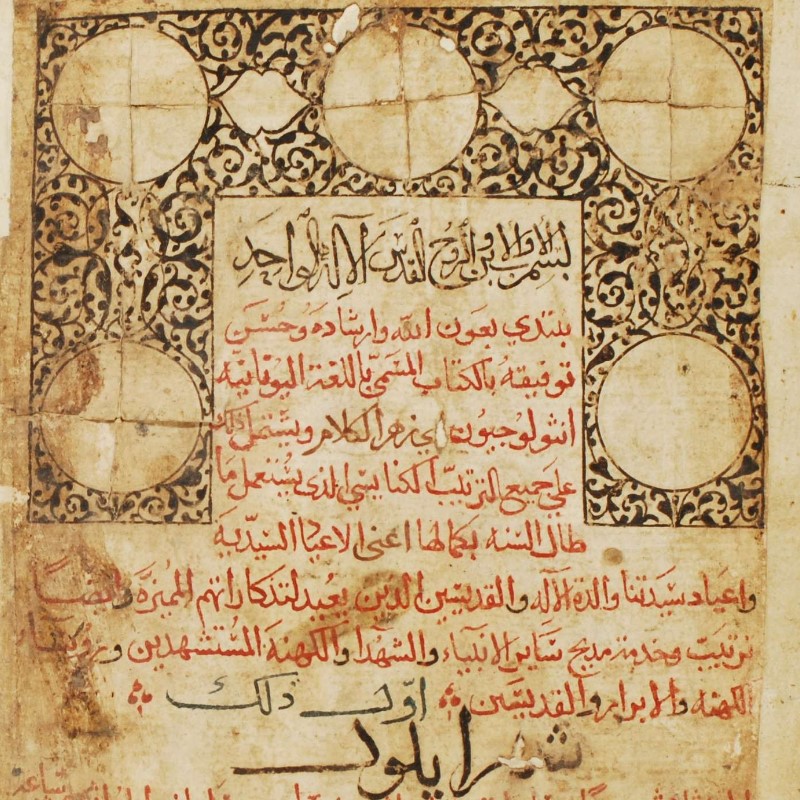 بسم الاب والابن والروح القدس الاله الواحد
نبتدي بعون الله وارشاده وحسن
توفيقه بالكتاب المسمى باللغة اليونانيه
انثولوجيون اي زهر الكلام ويشتمل ذلك
علي جميع الترتيب الكنايسي الذي يستعمل ما
طال السنه بكمالها اعني الاعياد السيديه
واعياد سيدتنا والدة الاله والقديسين الذين يعيد لتذكاراتهم المميزة وايضا
ترتيب وخدمة مديح ساير الانبياء والشهدا والكهنة المستشهدين وروسا
الكهنه والابرار والقديسين اول ذلك
شهر ايلول